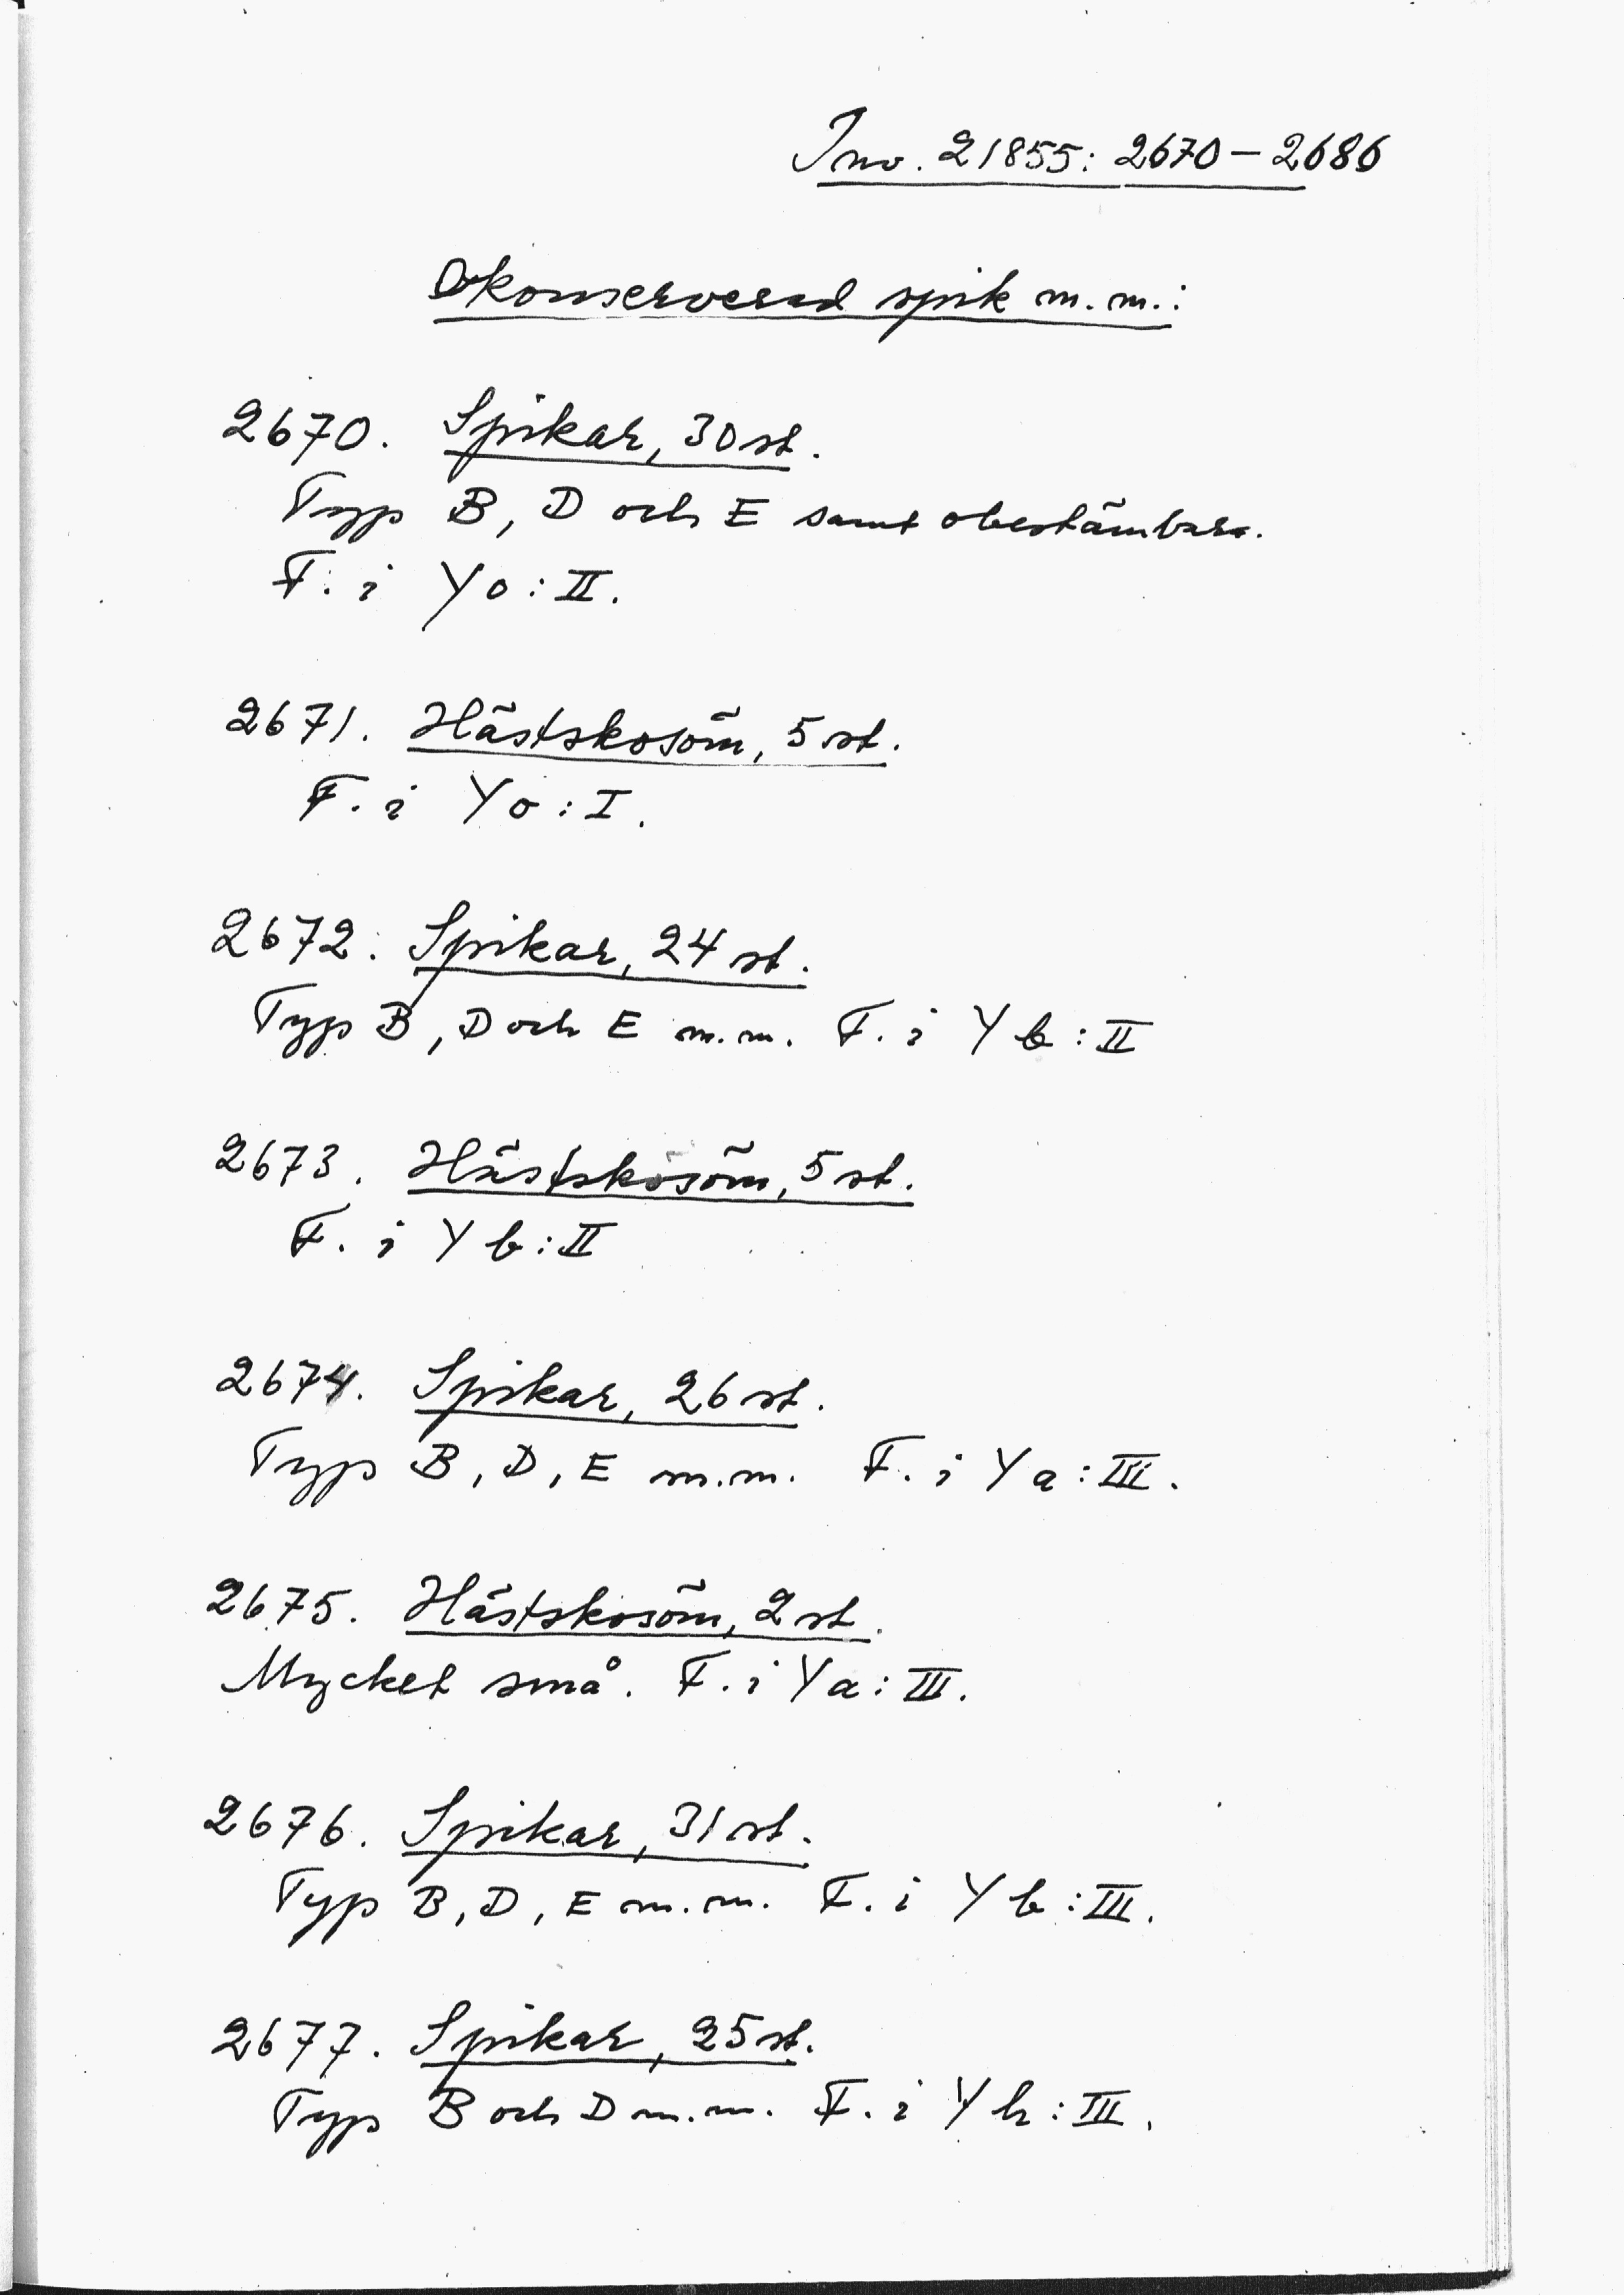 Inv. 21855: 2670–2686
Okonserverad spik m.m.:
2670. Spikar, 30 st.
Typ B, D och E samt obestämbara.
F. i Yo:II.
2671. Hästskosöm, 5 st.
F. i Yo:I.
2672. Spikar, 24 st.
Typ B, D och E m.m. F. i Yb:II
2673. Hästskosöm, 5 st.
F. i Yb:II
2674. Spikar, 26 st.
Typ B, D, E m.m. F. i Ya:III.
2675. Hästskosöm, 2 st.
Mycket små. F. i Ya:III.
2676. Spikar, 31 st.
Typ B, D, E m.m. F. i Yb:III.
2677. Spikar, 25 st.
Typ B och D m.m. F. i Yh:III.